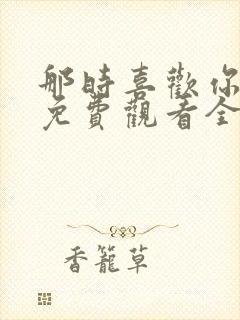 那時喜歡你
免費觀看全
香籠草